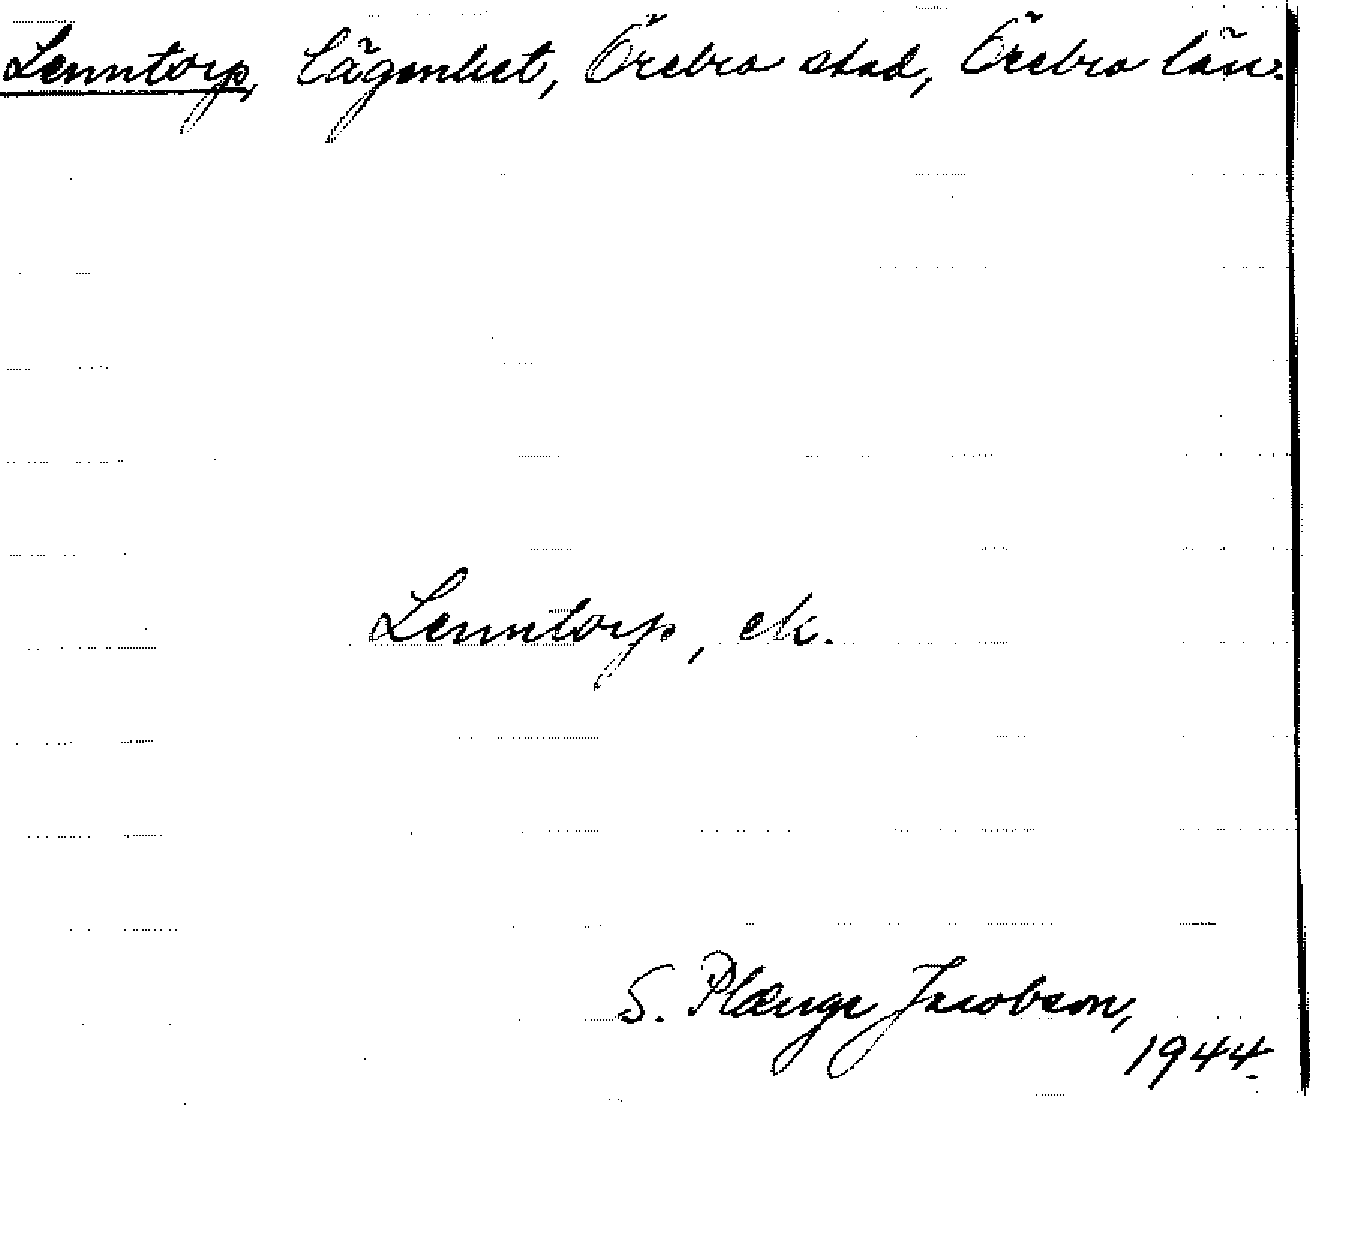 Lenntorp, lägenhet, Örebro stad, Örebro län.
Lenntorp, ek.
S. Plænge Jacobson,
1944.